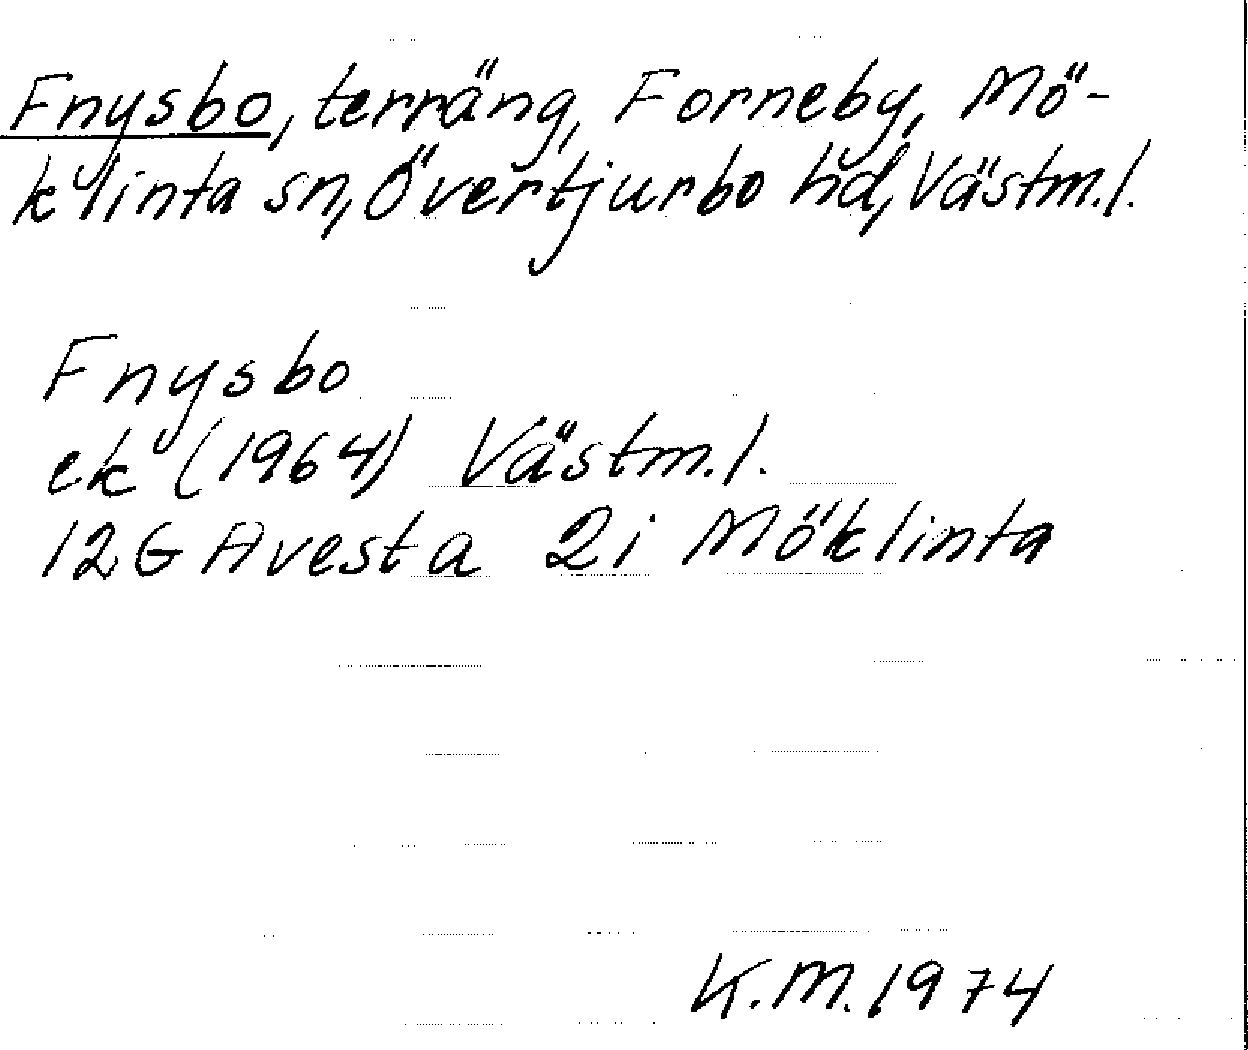 Fnysbo, terräng, Forneby, Mö-
klinta sn, Övertjurbo hd, Västm.l.
Fnysbo
ek (1964) Västm.l.
12G Avesta 2i Möklinta
K.M. 1974